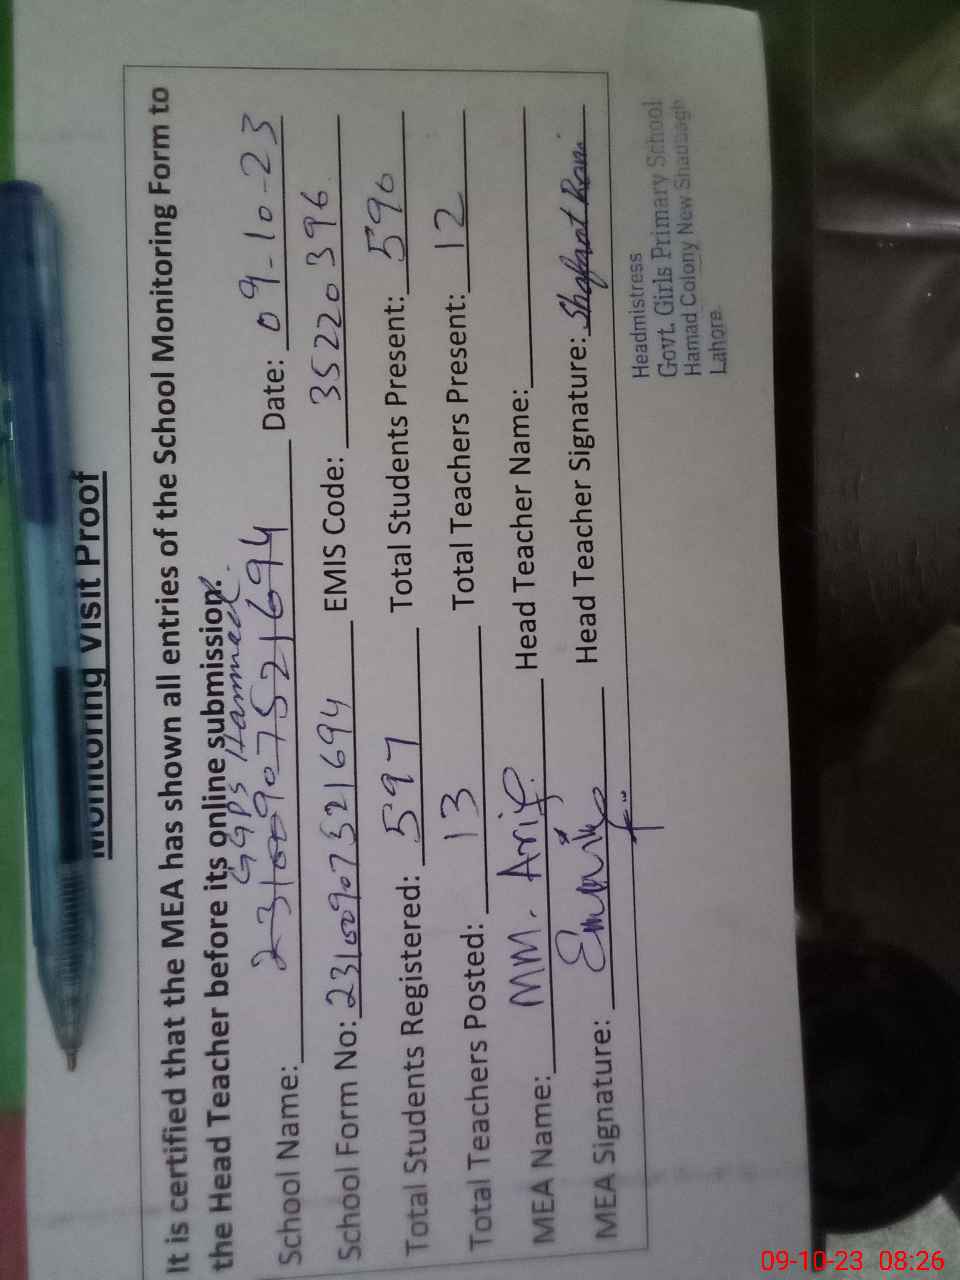 Monitoring Visit Proof
It is certified that the MEA has shown all entries of the School Monitoring Form to
the Head Teacher before its online submission.
GGPS Hammad
School Name: 23100907521694 Date: 09-10-23
School Form No: 23100907521694 EMIS Code: 35220396
Total Students Registered: 597 Total Students Present: 596
Total Teachers Posted: 13 Total Teachers Present: 12
MEA Name: MM. Arif Head Teacher Name:
MEA Signature: Head Teacher Signature:
Headmistress
Govt. Girls Primary School
Hamad Colony New Shadbagh
Lahore.
09-10-23 08:26